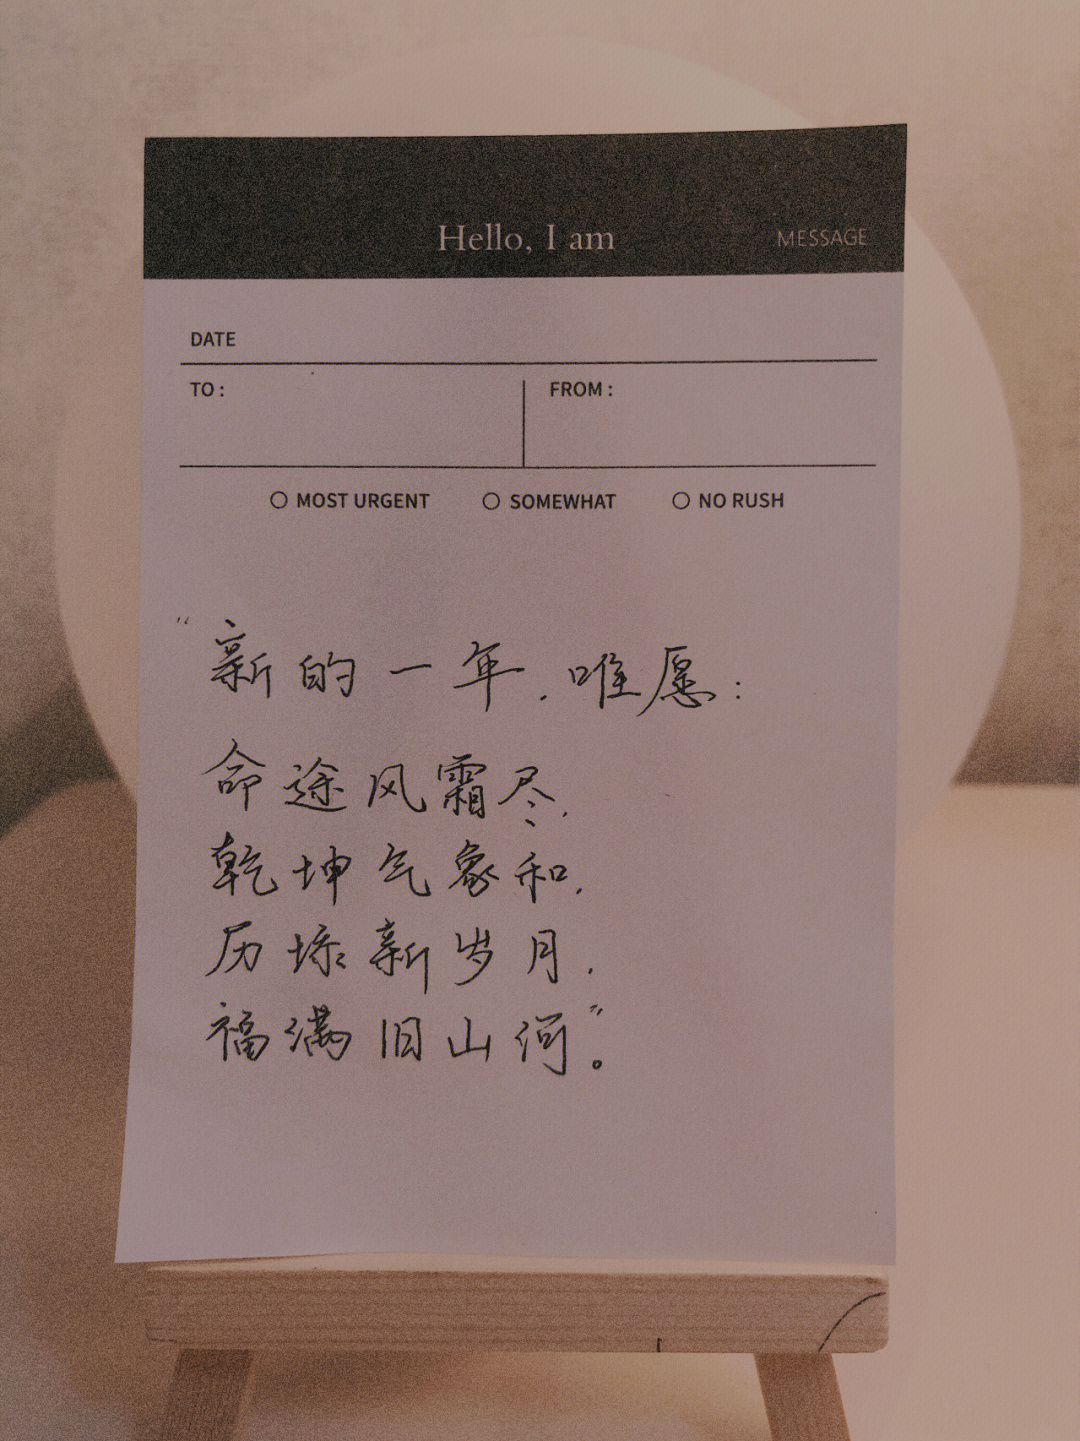 Hello, I am
MESSAGE
DATE
TO :
FROM :
MOST URGENT SOMEWHAT NO RUSH
“新的一年,唯愿:
命途风霜尽,
乾坤气象和,
历添新岁月,
福满旧山河”。